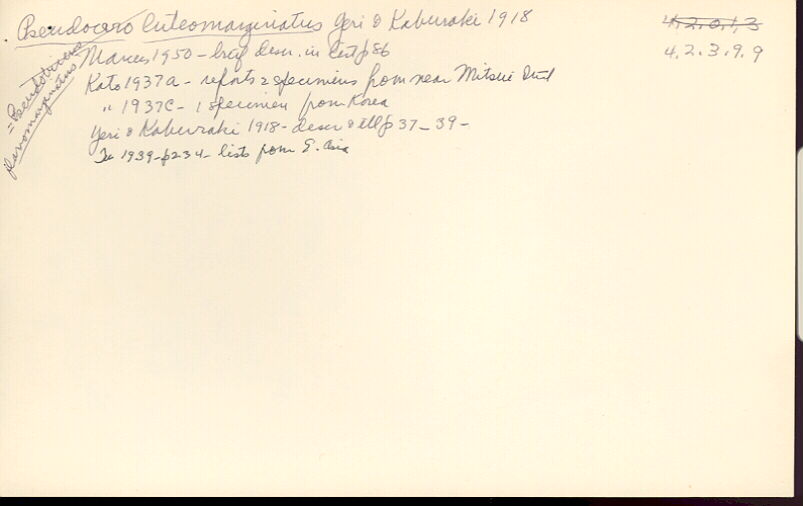 Pseudocero luteomarginatus Yeri & Kaburaki 1918
4.2.0.1.3
4.2.3.9.9
= Pseudobiceros flavomarginatus
Marcus 1950 - brief descr. in list p 86
Kato 1937a - reports 2 specimens from near Mitsui Inst
" 1937c - 1 specimen from Korea
Yeri & Kaburaki 1918 - descr & ill p 37 - 39 -
Tu 1939 - p 234 - lists from E. Asia